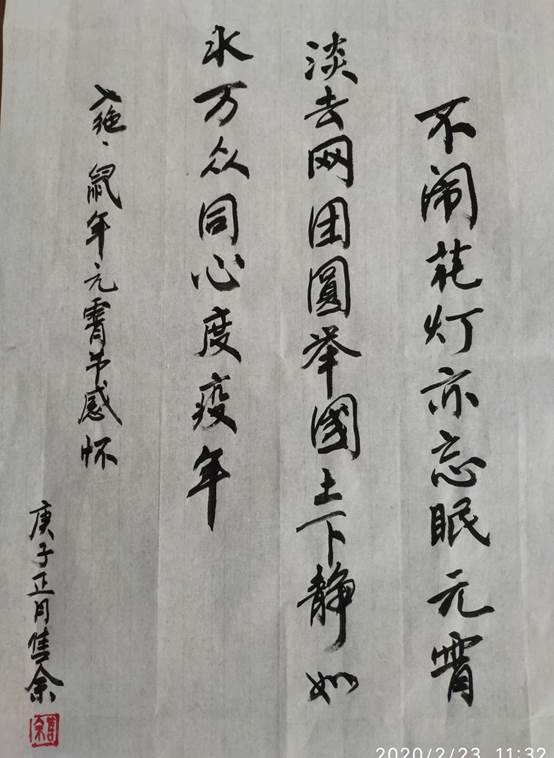 不闹花灯亦忘眠元宵
淡去网团圓举國上下静如
水万众同心度疫年
七绝、鼠年元宵节感怀
庚子正月余
2020/2/23 11:32